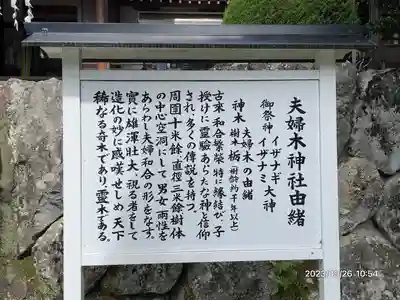 夫婦木神社由緒
御祭神 イザナギ イザナミ 大神
夫婦木の由緒
神木 樹木 栃(樹齢約千年以上)
古来、和合繁榮、特に縁結び、子
授けに靈驗あらたな神と信仰
され、多くの傳説を持つ。
周囲十米餘、直徑三米餘樹体
の中心空洞にして男女両性を
あらわし夫婦和合の形をなす。
實に雄渾壮大、視る者をして
造化の妙に感嘆せしめ天下
稀なる奇木であり、靈木である。
10:54